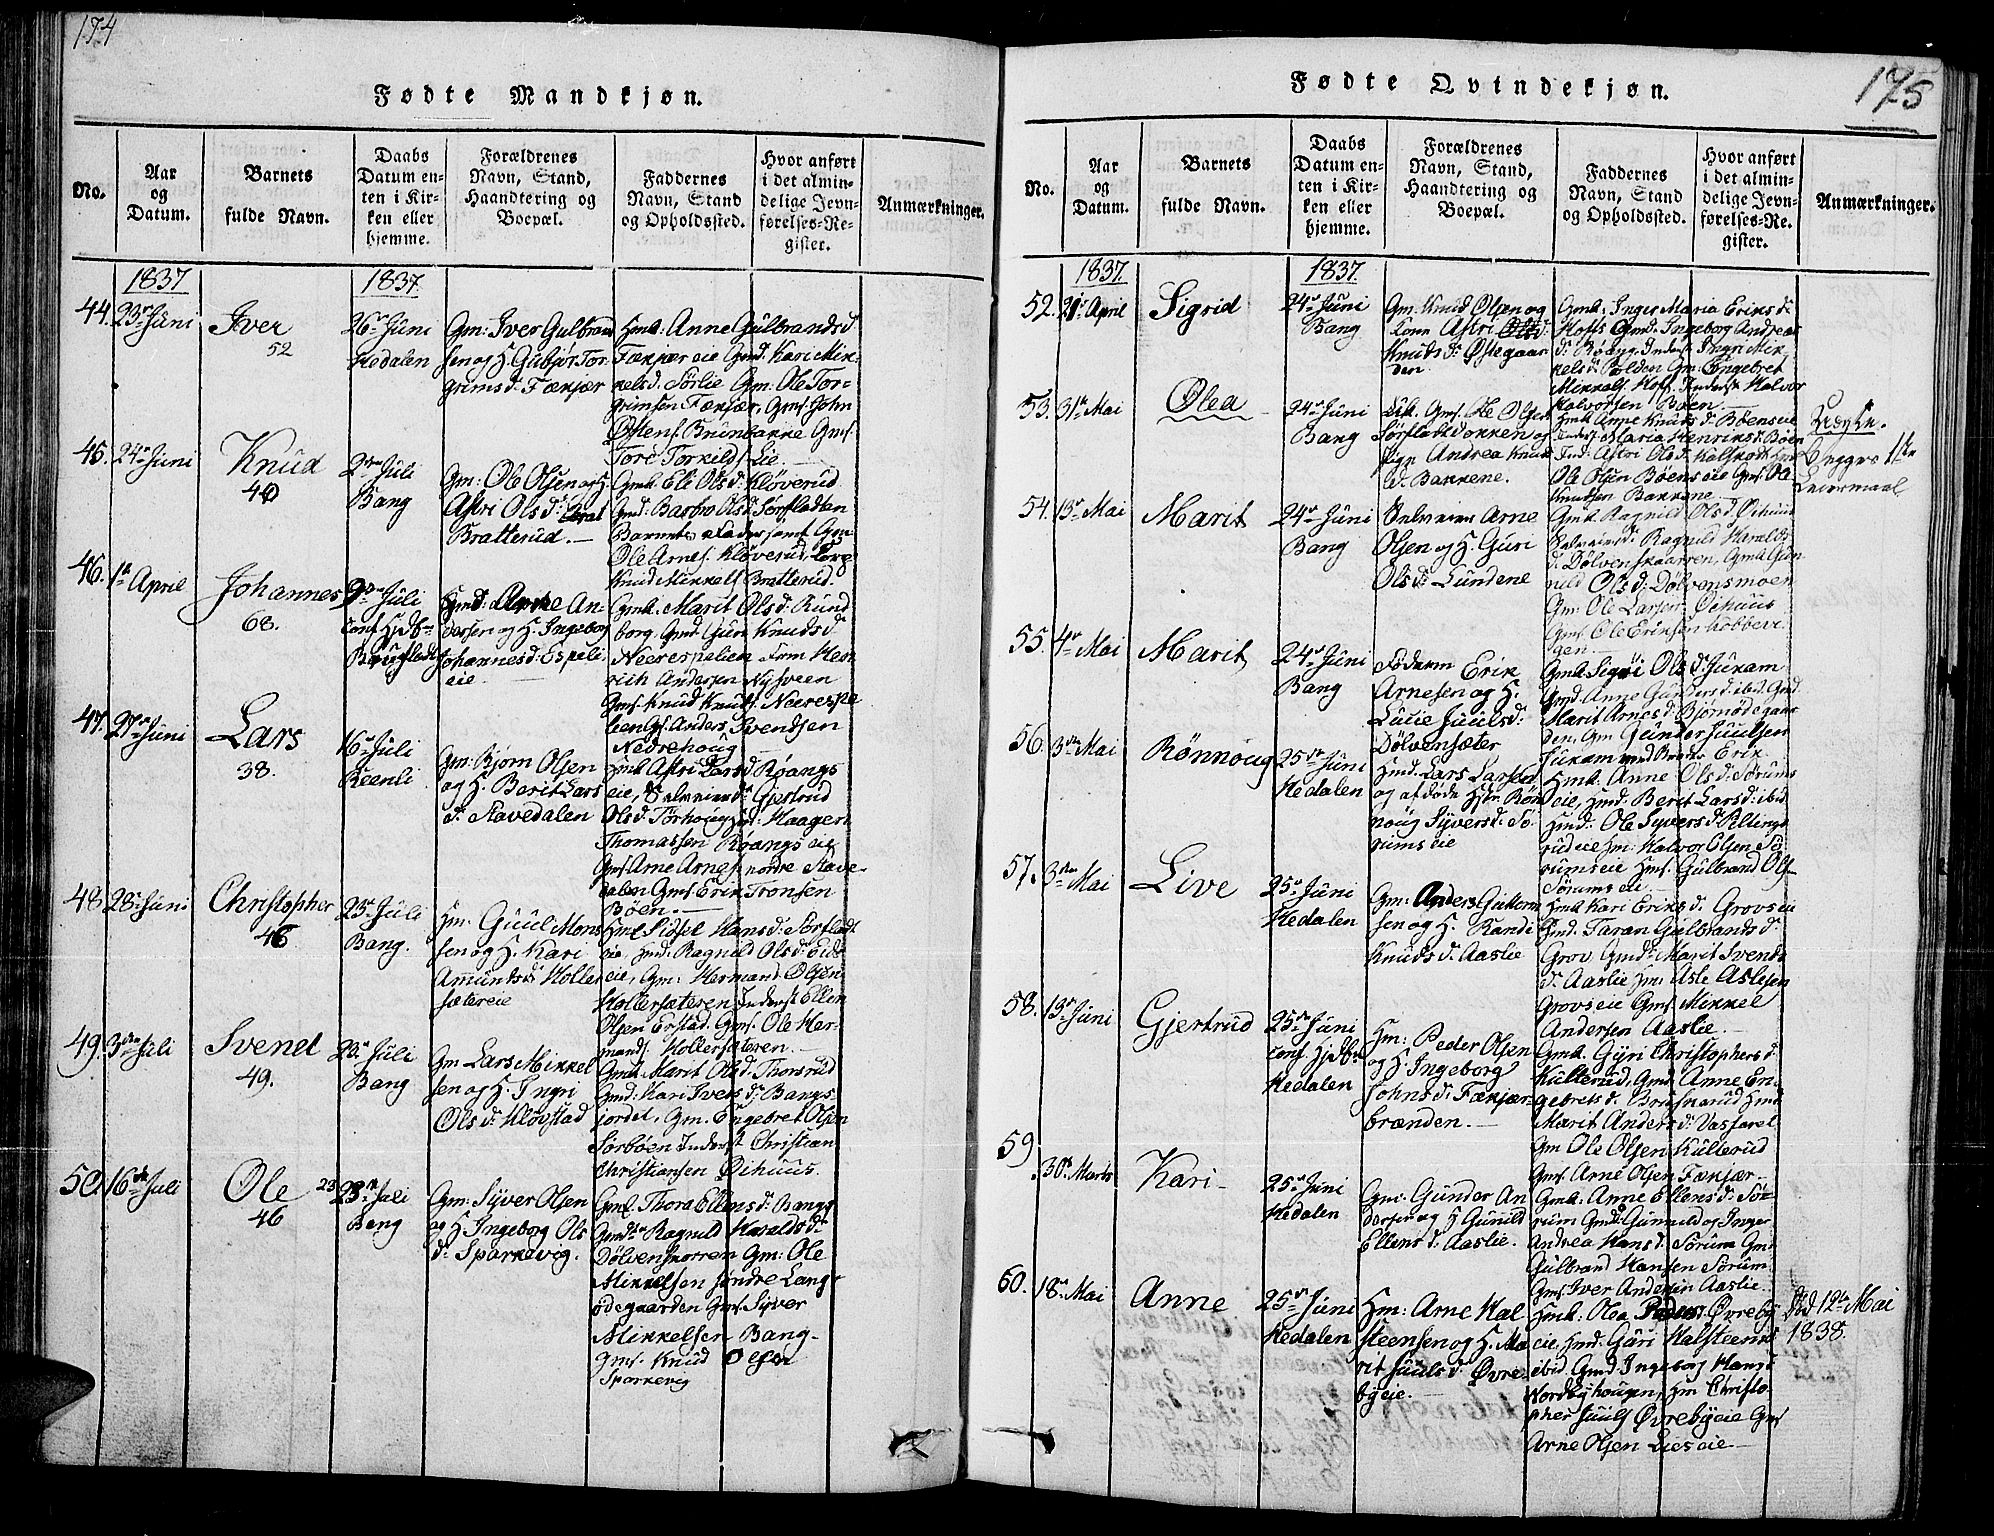 174
Fødte Mandkjøn.
No.
Aar
og
Datum.
Barnets
fulde Navn.
Daabs
Datum en-
ten i Kir-
ken eller
hjemme.
Forældrenes
Navn, Stand,
Haandtering og
Boepæl.
Faddernes
Navn, Stand
og Opholdssted.
Hvor anført
i det almin-
delige Jevn-
førelses-Re-
gister.
Anmærkninger.
1837
1837.
44. 23de Juni
Iver
52
26de Juni
Hedalen
Gm: Iver Gulbrand
sen og H. Gubjør Tor-
grims d. Fækjær
Hmk. Anne Gulbrands d
Fækjær eie Gmd. Kari Mik-
kels d. Sørlie Gm. Ole Tor-
grimsen Fækjær, Gms. John
Østens. Brunbakke Gms.
Tore Torkilds. Lie.
45. 24de Juni
Knud
40
2den Juli
Bang
Gm: Ole Olsen og H.
Astri Ols d:
Bratterud.
Gmk. Eli Ols d. Kløverud
Gmd. Barbro Ols d. Sørfladten
Barnets Fader samt Gm
Ole Arnes. Kløverud
Knud Mikkels. Bratterud.
46. 1ste April
Johannes
68.
9de Juli
conf. Hjdb
Brugfladt
Arne An-
dersen og H. Ingeborg
Johannes d: Espeli
eie
Gmk. Marit Ols d. Rund
borg. Gmd. Guri Knuds d.
Neerespelien Hen
rich Andersen Nysveen
Gms. Knud Knuds. Neerespe
lien Gs. Anders Svendsen
Nedrehoug
47. 27de Juni
Lars
38.
16de Juli
Reenli
Gm: Bjørn Olsen
og H. Berit Lars
d. Stavedalen
Hmk Astri Lars d. Røangs
eie, Gjertrud
Ols d. Haagen
Thomassen Røangs eie
Gms. Arne Arnes. nordre Stave-
dalen Gms. Erik Tronsen
Bøen.
48. 28de Juni
Christopher
46
23de Juli
Bang.
Hm: Guul Mons
sen og H. Kari
Amunds d. Holler
sætereie
Hmk Sidsel Hans d. Sørfladt
eie, Hmd. Ragnild Ols d. Eids
eie, Gm: Hermand Olsen
Hollersæteren Inderst Ellen
Olsen Erstad. Gms. Ole Her-
mands. Hollersæteren.
49. 3die Juli
Svend
49.
23de Juli
Bang
Gm Lars Mikkel
sen og H. Ingri
Ols d. Kløvstad
Gmk. Marit Ols d. Thorsrud
Gmd: Kari Ivers d. Bangs
jordet, Gm. Engebret Olsen
Sørbøen Inderst Christian
Christiansen Øihuus.
50. 16de Juli
Ole
46
23de Juli
Bang
Gm: Syver Olsen
og H Ingeborg Ols
d. Sparkevig.
Gmk. Thora Ellens d. Bang
Gmd. Ragnild Haralds d.
Dølvenskorren Gm: Ole
Mikkelsen søndre Lang-
ødegaarden Gms. Syver
Mikkelsen Bang-
Gms. Knud Olsen
Sparkevig
175
Fødte Qvindekjøn.
No.
Aar
og
Datum.
Barnets
fulde Navn.
Daabs
Datum en-
ten i Kir-
ken eller
hjemme.
Forældrenes
Navn, Stand,
Haandtering og
Boepæl.
Faddernes
Navn, Stand
og Opholdssted.
Hvor anført
i det almin-
delige Jevn-
førelses-Re-
gister.
Anmærkninger.
1837.
1837.
52. 21de April
Sigrid
24de Juni
Bang
Gm. Knud Olsen og
Kone Astri
Knuds d. Østegaar
den.
Gmk. Inger Maria Eriks d.
Hofs Gmd. Ingeborg Andreas
d. Røang. Inderst Ingri Mik
kels d. Polden Gm: Engebret
Mikkels. Hofs. Inderst Halvor
Halvorsen Bøen.
53. 31te Mai
Olea
24de Juni
Bang
Gms. Ole Olsen
Sørfladtdokken og
Pige Andrea Knuds
d. Bakkene.
Hmk Anne Knuds d. Bøenseie
Maria Henriks d. Bøen
Ind: Astri Ols d.
Ole Olsen Bøens eie Gms. Ole
Knudsen Bakkene
Uægte.
Begges 1ste
Leiermaal
54. 13de Mai
Marit
24de Juni
Bang
Selveier Arne
Olsen og H. Guri
Ols d. Lundene
Gmk. Ragnild Ols d. Øihuus
Ragnild Haralds
d. Dølvenskaarren, Gmd. Gun
nild Ols d. Dølvensmoen
Gm: Ole Larsen Øihuus
Gms. Ole Eriksen Kobbervi
gen.
55. 4de Mai
Marit
24de Juni
Bang
Føderm Erik
Arnesen og H.
Lucie Juuls d.
Dølvensæter
Gmk Sigri Ols d. Jukam
Gmd. Anne Gunders d. ibid. Gmd.
Marit Arnes d. Bjørnødegaar
den, Gm Gunder Juulsen
Jukam med Broder Erik
56. 3die Mai
Rønnoug
25de Juni
Hedalen
Hmd. Lars Larsen
og afdøde Hstr. Røn
noug Syvers d. Sø-
rumseie
Hmk. Anne Ols d. Sørums
eie, Hmd. Berit Lars d. ibid.
Hmd: Ole Syvers d. Pellings
rud eie Hm: Halvor Olsen Sø-
rumseie Hms. Gulbrand Ols
Sørums eie
57. 3die Mai
Live
25de Juni
Hedalen
Gm: Anders Guttorm
sen og H. Randi
Knuds d. Aaslie
Hmk Kari Eriks d. Grovs eie
Gmd. Taran Gulbrands d.
Grov. Gmd. Marit Svends
d. Aaslie Hm: Asle Aslesen
Grovseie Gms. Mikkel
Andersen Aaslie.
58. 13de Juni
Gjertrud
25de Juni
conf. Hjdb.
Hedalen
Hm: Peder Olsen
og H Ingeborg
Johns d. Fækjær-
brænden.
Gmk. Gyri Christophers d.
Kulterud, Gmd. Anne En-
gebrets d. Bruskerud Hmd
Marit Anders d. Vasfaret
Gm Ole Olsen Kulterud
Gms. Arne Olsen Fækjær
59. 30te Marts
Kari
25de Juni
Hedalen
Gm: Gunder An
dersen og H Gunild
Ellens d. Aaslie.
Gmk: Anne Ellens d. Sø-
rum Gmd. Gunnild og Inger
Andrea Hans d. Sørum Gm.
Gulbrand Hansen Sørum
Gms Iver Andersen Aaslie
60. 18de Mai
Anne
25de Juni
Hedalen
Hm: Arne Hal
steensen og H. Ma
rit Juuls d. Øvre
byeie.
Hmk: Olea Peders d. Øvreby
eie Hmd: Guri Halsteens d
ibid. Gmd Ingeborg Hans d
Nordbyhougen, Hm Christo-
pher Juuls. Øvrebyeie Gms
Arne Olsen Lieseie
Død 12te Mai
1838.